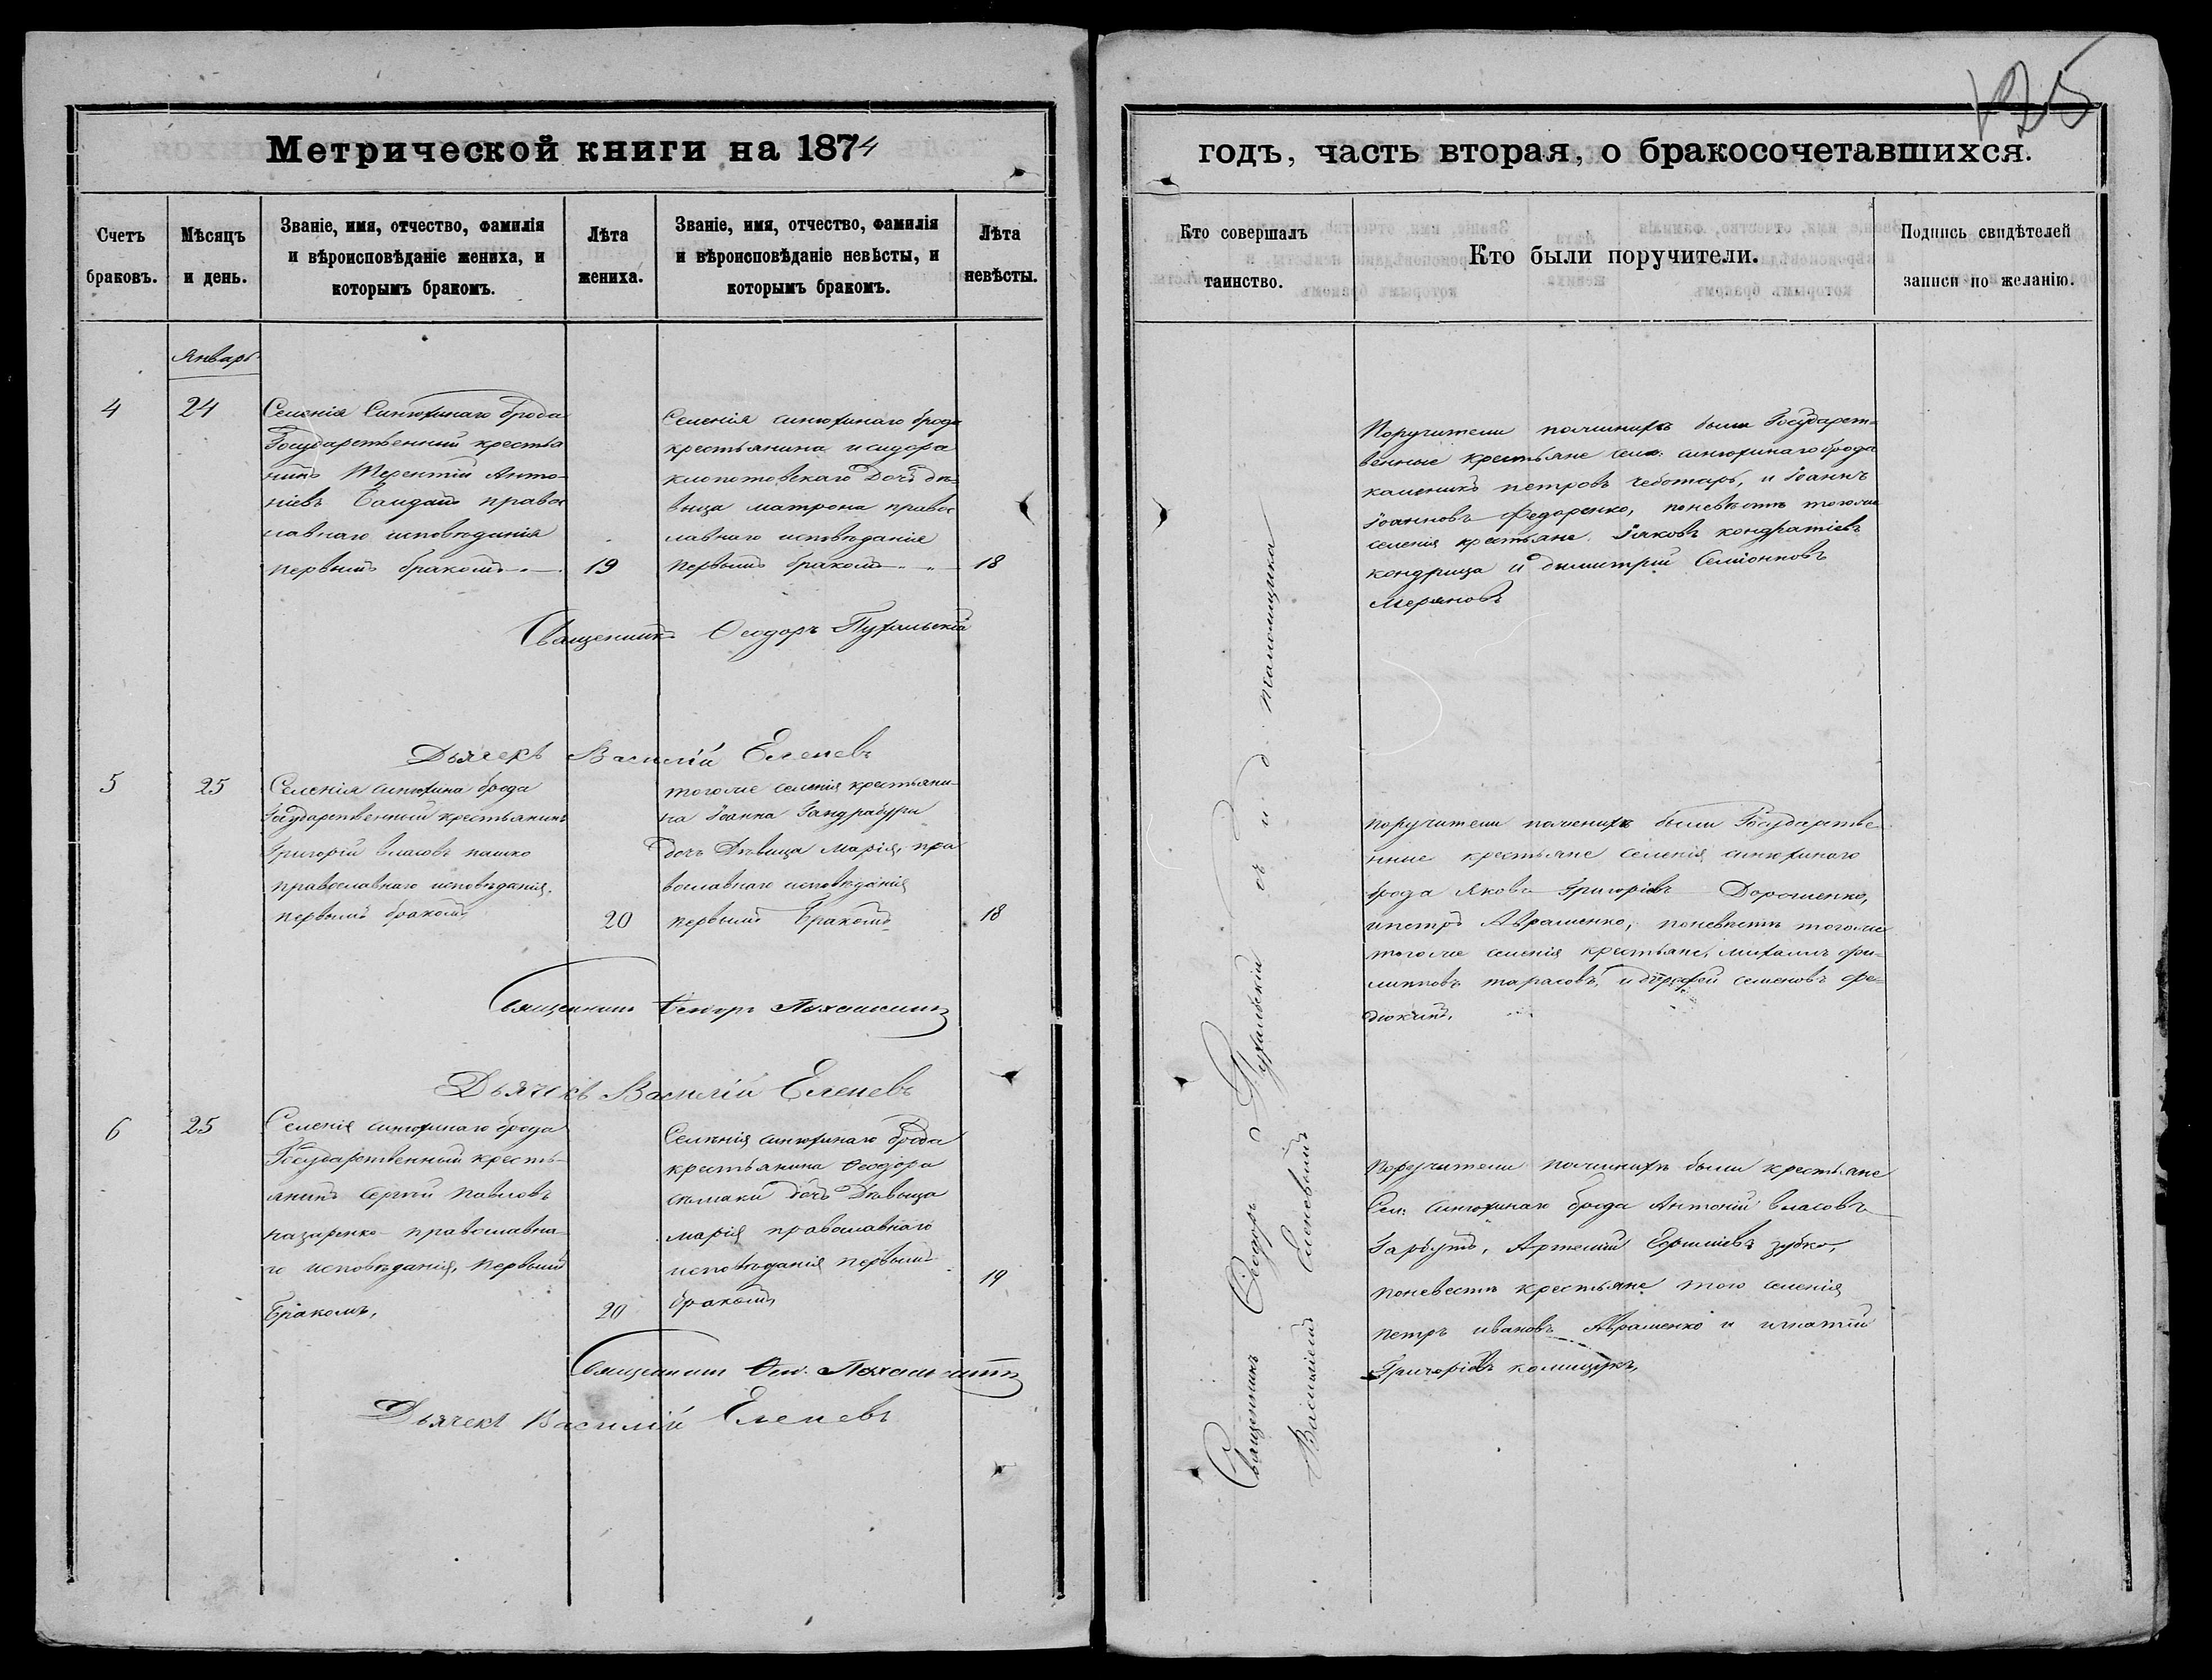 125
Метрической книги на 1874
годъ, часть вторая, о бракосочетавшихся.
Счетъ браковъ.
Мѣсяцъ и день.
Званіе, имя, отчество, фамилія
и вѣроисповѣданіе жениха, и
которымъ бракомъ.
Лѣта жениха.
Званіе, имя, отчество, фамилія
и вѣроисповѣданіе невѣсты, и
которымъ бракомъ.
Лѣта невѣсты.
Кто совершалъ
таинство.
Кто были поручители.
Подпись свидѣтелей
записи по желанію.
Январь
4
24
Селенія Синюхинаго брода
Государственный крестья
нинъ Терентій Анто-
ніевъ правос
лавнаго исповѣданія
первымъ бракомъ
19
Селенія синюхинаго брода
крестьянина исидора
клопотовскаго дочь дѣ-
вица матрона правос
лавнаго исповѣданія
первымъ бракомъ
18
Священникъ Ѳеодоръ Пухальскій
Дьячекъ Василій Еленевъ
Поручители поженихѣ были Государст-
венные крестьяне сел: синюхинаго брода
калиникъ петровъ чеботарь, и Іоаннъ
Іоанновъ Федоренко, поневѣстѣ тогоже
селенія крестьяне Іяковъ кондратіевъ
кондрица и димитрій Семіоновъ
Меряновъ
5
25
Селенія синюхина брода
Государственный крестьянинъ
Григорій власовъ пашко
православнаго исповѣданія,
первымъ бракомъ
20
тогоже селенія крестьяни-
на Іоанна Гандрабуры
дочь Дѣвица Марія, пра
вославнаго исповѣданія
первымъ бракомъ
18
Священникъ Ѳеодоръ Пухальскій
Дьячекъ Василій Еленевъ
поручители поженихѣ были Государстве
нные крестьяне селенія синюхинаго
брода Яковъ Григоріевъ Дорошенко,
ипетръ Авраменко, поневѣстѣ тогоже
тогоже селенія крестьяне, михаилъ фи-
липповъ тарасовъ, и семеновъ фе-
6
25
Селенія синюхинаго брода
Государственный кресть-
янинъ Сергій Павловъ
назаренко православна-
го исповѣданія, первымъ
бракомъ,
20
Селенія синюхинаго брода
крестьянина Ѳеодора
дочь Дѣвица
марія православнаго
исповѣданія первымъ
бракомъ,
19
Священникъ Ѳео. Пухальскій
Дьячекъ Василій Еленевъ
Поручители поженихѣ были крестьяне
Сел: синюхинаго брода Антоній власовъ
Гарбузъ, Артемій зубко,
поневестѣ крестьяне того селенія
петръ ивановъ Авраменко и игнатій
Григоріевъ комищукъ,
Священникъ Ѳеодоръ Пухальскій съ и. д. псаломщика
Василіемъ Еленевымъ